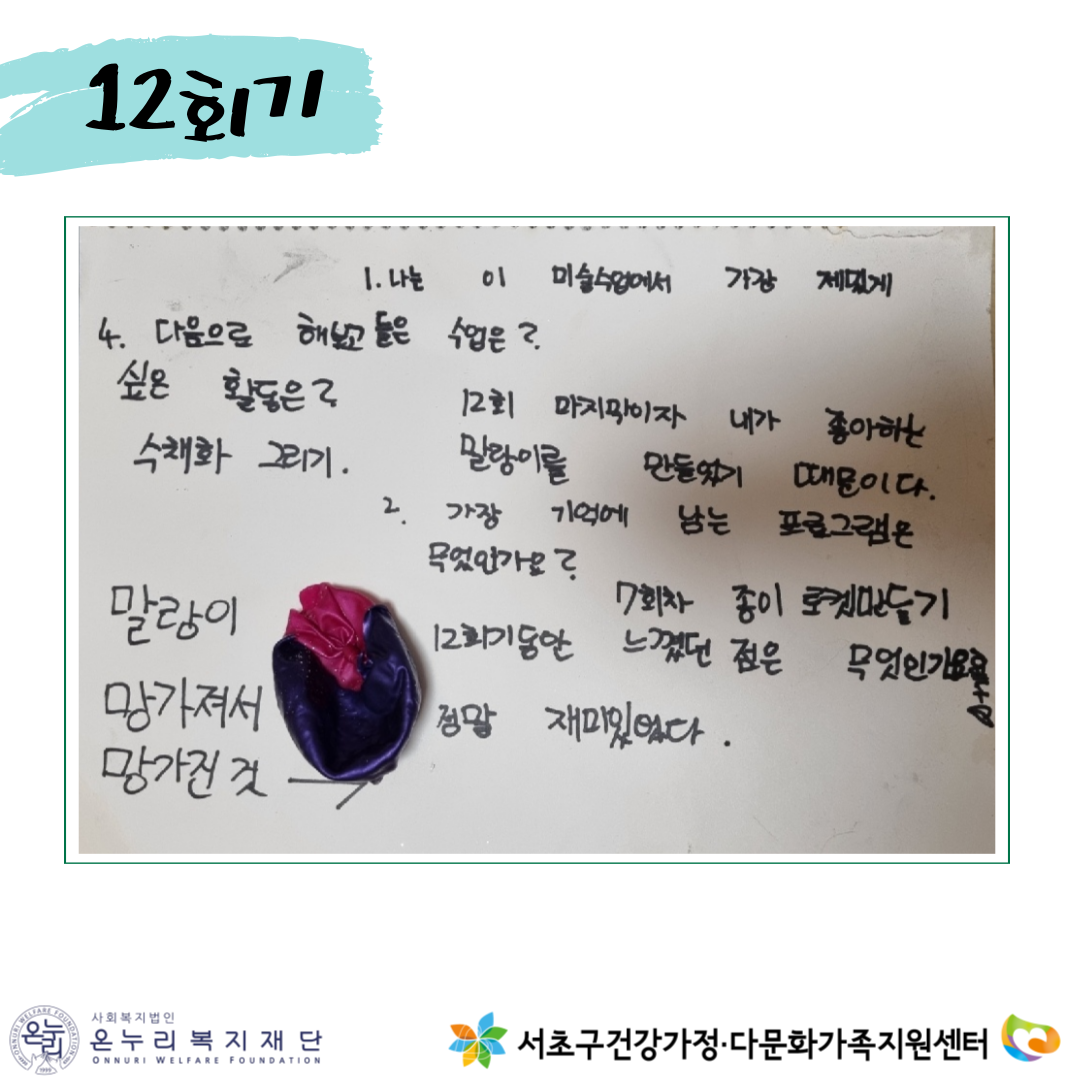 12회기
1. 나는 이 미술수업에서 가장 제밌게
들은 수업은?
12회 마지막이자 내가 좋아하는
말랑이를 만들었기 때문이다.
2. 가장 기억에 남는 프로그램은
무엇인가요?
7회차 종이 로켓만들기
12회기동안 느꼈던 점은 무엇인가요?
정말 재미있었다.
4. 다음으로 해보고
싶은 활동은?
수채화 그리기.
말랑이
망가져서
망가진 것
사회복지법인
온누리복지재단
ONNURI WELFARE FOUNDATION
서초구건강가정·다문화가족지원센터